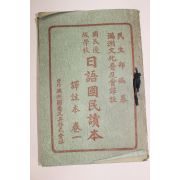 民生部編纂
滿洲文化普及會譯註
國民優級學校
日語國民讀本
譯註本 卷一